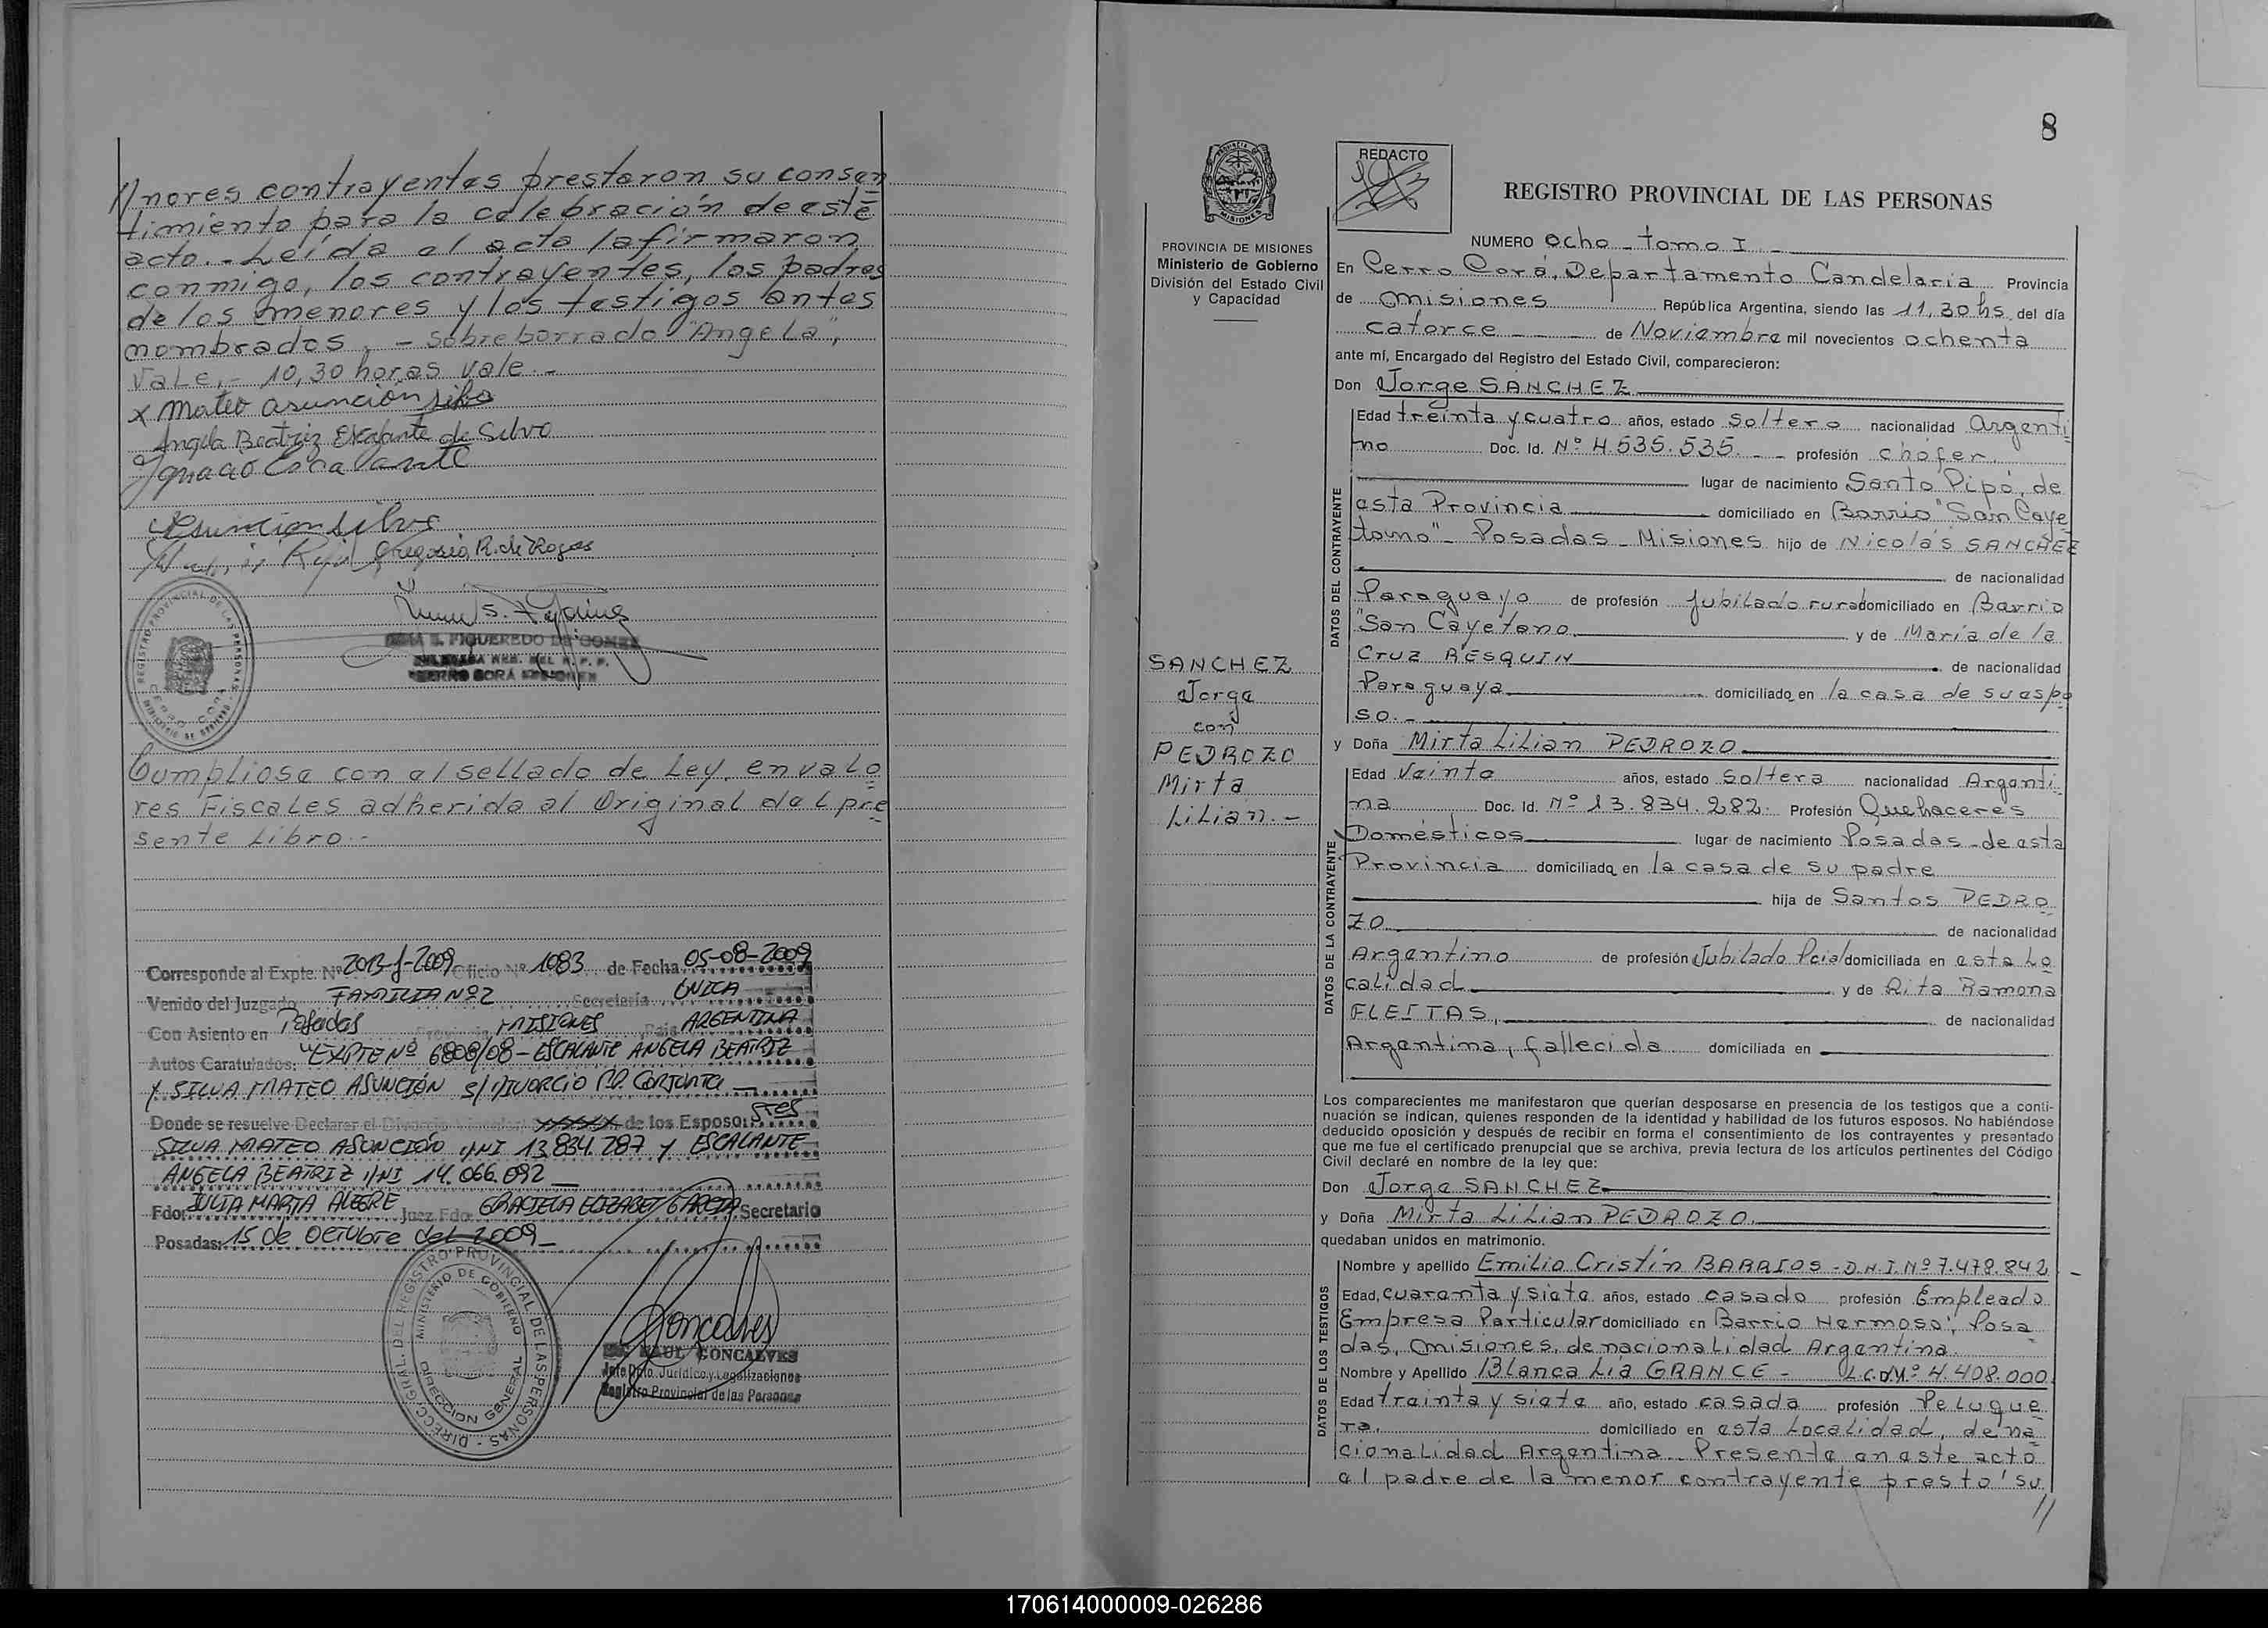 //nores contrayentes prestaron su consen
timiento para la celebración de este
acto.- Leída el acta la firmaron
conmigo, los contrayentes, los padres
de los menores y los testigos antes
nombrados. - Sobreborrado "Angela",
Vale.- 10,30 horas vale.-
x Mateo Asunción Silva
Angela Beatriz Escalante de Silva
Ignacio Escalante
Asuncion Silva
Gregoria R. de Rojas
S. FIGUEREDO DE GOMEZ
CERRO CORÁ MISIONES
Cumpliose con el sellado de Ley, en valo
res Fiscales adherido al Original del pre
sente Libro.-
Corresponde al Expte. Nº 2013-J-2009 Oficio Nº 1083 de Fecha 05-08-2009
Venido del Juzgado FAMILIA Nº 2 Secretaría ÚNICA
Con Asiento en Posadas Provincia MISIONES País ARGENTINA
Autos Caratulados: "EXPTE Nº 6808/08 - ESCALANTE ANGELA BEATRIZ
Y SILVA MATEO ASUNCIÓN S/ DIVORCIO P.P. CONJUNTA
Donde se resuelve Declarar el Divorcio Vincular de los Esposos: STES
SILVA MATEO ASUNCIÓN DNI 13.834.787 y ESCALANTE
ANGELA BEATRIZ DNI 14.066.092
Fdo: JULIA MARTA ALEGRE Juez Fdo: GRACIELA ELIZABET GARCIA Secretario
Posadas: 15 de OCTUBRE del 2009
DIRECC. GRAL. DEL REGISTRO PROVINCIAL DE LAS PERSONAS
MINISTERIO DE GOBIERNO
DIRECCION GENERAL
Goncalves
RAUL GONCALVES
Jefe Dpto. Jurídico y Legalizaciones
Registro Provincial de las Personas
8
REDACTO
REGISTRO PROVINCIAL DE LAS PERSONAS
PROVINCIA DE MISIONES
Ministerio de Gobierno
División del Estado Civil
y Capacidad
SANCHEZ
Jorge
con
PEDROZO
Mirta
Lilian.-
NUMERO ocho - tomo I -
En Cerro Corá, Departamento Candelaria Provincia
de Misiones República Argentina, siendo las 11,30 hs. del día
catorce de Noviembre mil novecientos ochenta
ante mí, Encargado del Registro del Estado Civil, comparecieron:
Don Jorge SANCHEZ
DATOS DEL CONTRAYENTE
Edad treinta y cuatro años, estado Soltero nacionalidad Argenti
no Doc. Id. Nº 4.535.535.- - profesión chofer
lugar de nacimiento Santo Pipó, de
esta Provincia domiciliado en Barrio "San Caye
tano" - Posadas - Misiones hijo de Nicolás SANCHEZ
de nacionalidad
Paraguayo de profesión Jubilado rural domiciliado en Barrio
"San Cayetano y de María de la
Cruz RESQUIN de nacionalidad
Paraguaya domiciliado en la casa de su espo
so.-
y Doña Mirta Lilian PEDROZO
DATOS DE LA CONTRAYENTE
Edad Veinte años, estado Soltera nacionalidad Argenti
na Doc. Id. Nº 13.834.282. Profesión Quehaceres
Domésticos lugar de nacimiento Posadas - de esta
Provincia domiciliada en la casa de su padre
hija de Santos PEDRO
ZO de nacionalidad
Argentino de profesión Jubilado Pcial domiciliada en esta Lo
calidad y de Rita Ramona
FLEITAS, de nacionalidad
Argentina, fallecida domiciliada en
Los comparecientes me manifestaron que querían desposarse en presencia de los testigos que a conti-
nuación se indican, quienes responden de la identidad y habilidad de los futuros esposos. No habiéndose
deducido oposición y después de recibir en forma el consentimiento de los contrayentes y presentado
que me fue el certificado prenupcial que se archiva, previa lectura de los artículos pertinentes del Código
Civil declaré en nombre de la ley que:
Don Jorge SANCHEZ
y Doña Mirta Lilian PEDROZO.
quedaban unidos en matrimonio.
DATOS DE LOS TESTIGOS
Nombre y apellido Emilio Cristín BARRIOS - D.N.I. Nº 7.478.842 -
Edad, cuarenta y siete años, estado casado profesión Empleado
Empresa Particular domiciliado en Barrio Hermoso, Posa
das, Misiones, de nacionalidad Argentina.
Nombre y Apellido Blanca Lía GRANCE - L.C. Nº 4.408.000
Edad treinta y siete año, estado casada profesión Peluque
ra. domiciliado en esta Localidad, de na
cionalidad Argentina. Presente en este acto
el padre de la menor contrayente prestó su
//
170614000009-026286